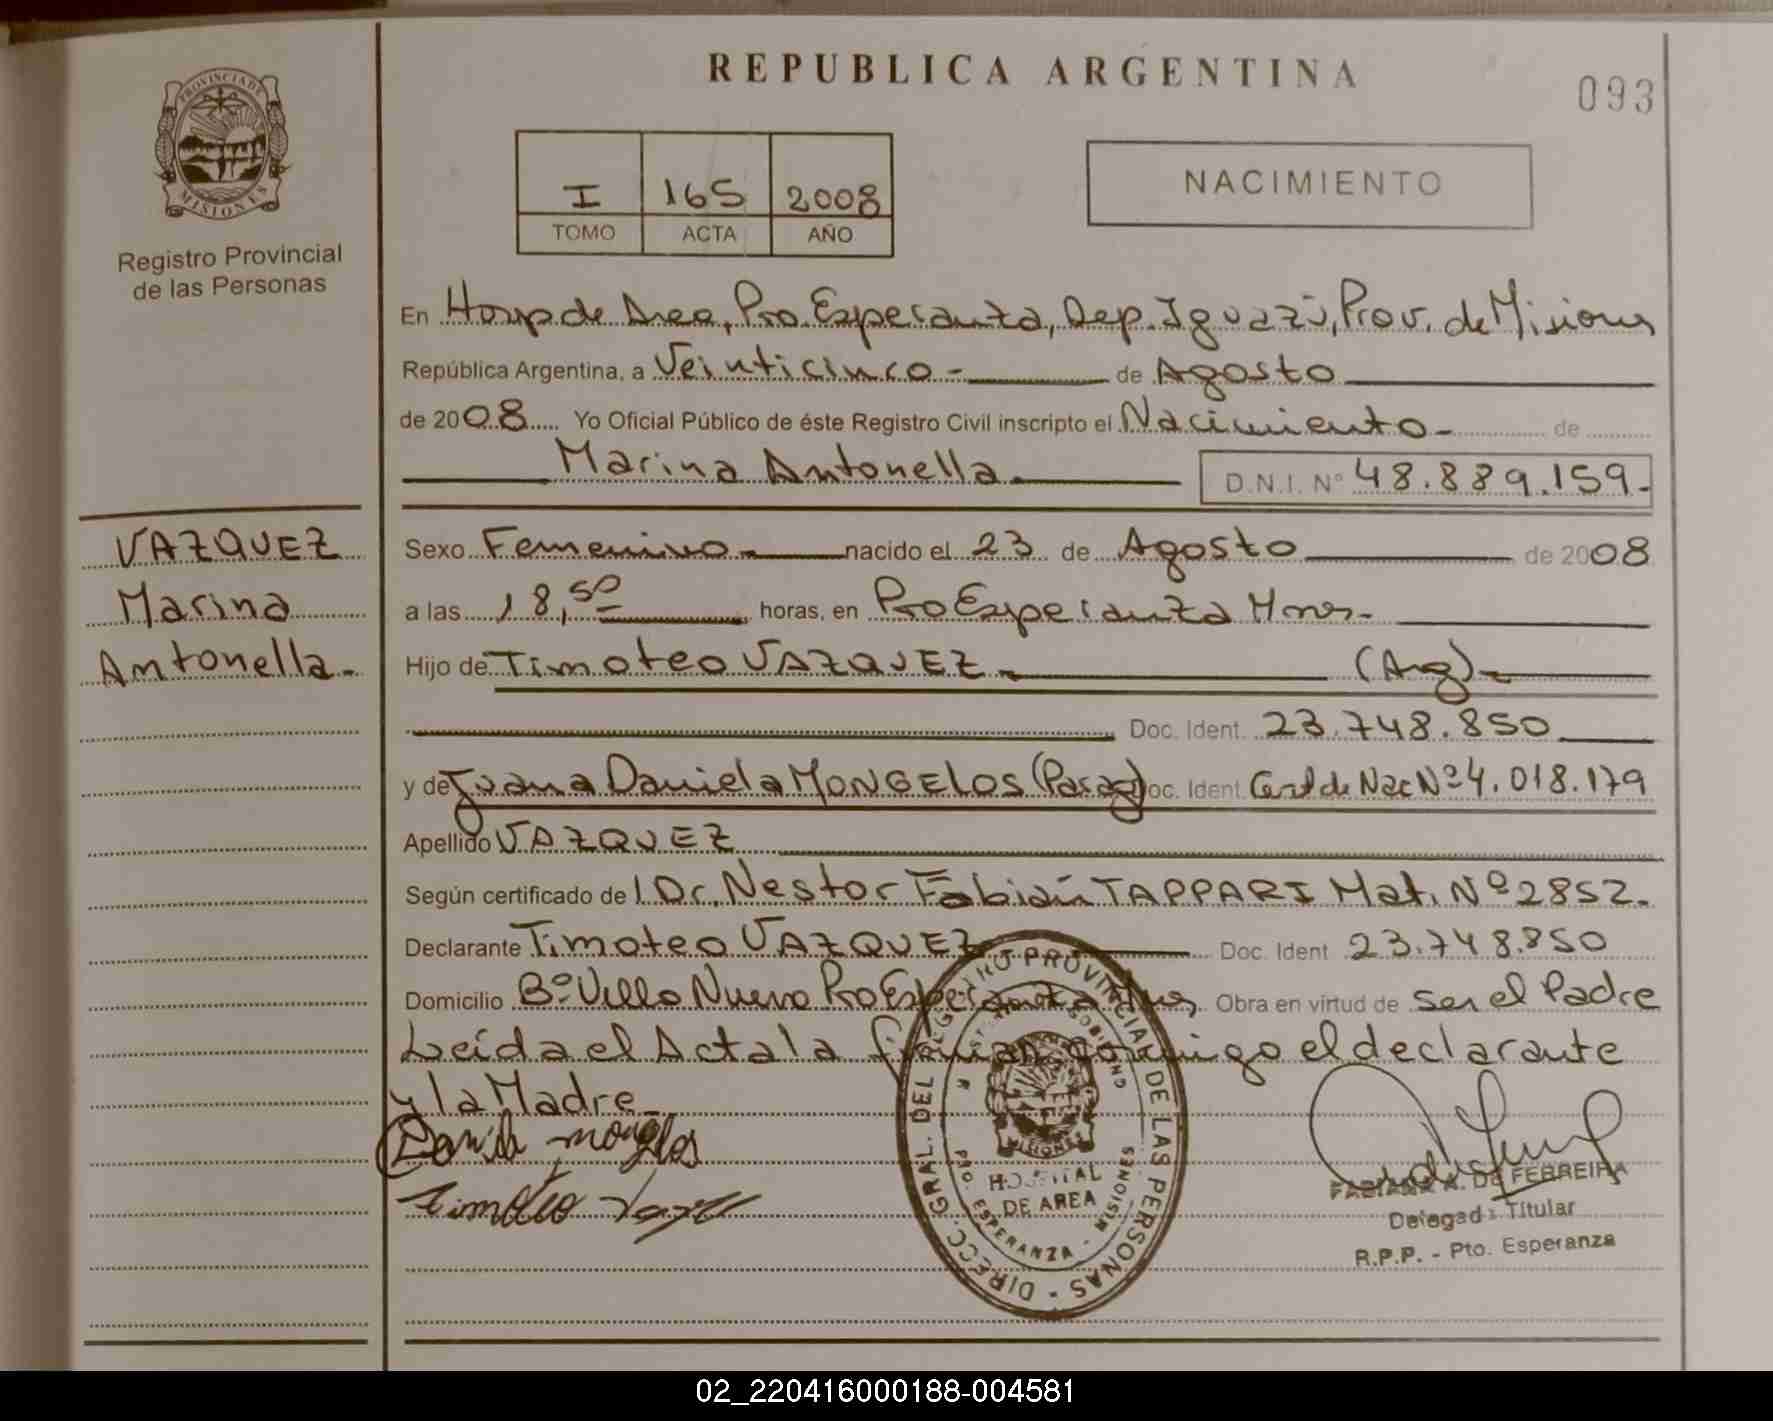 REPUBLICA ARGENTINA
093
PROVINCIA DE
MISIONES
Registro Provincial
de las Personas
I 165 2008
TOMO ACTA AÑO
NACIMIENTO
En Hosp de Area, Pto. Esperanza, Dep. Iguazú, Prov. de Misiones
República Argentina, a Veinticinco - de Agosto
de 2008 Yo Oficial Público de éste Registro Civil inscripto el Nacimiento - de
Marina Antonella. D.N.I. Nº 48.889.159.
VAZQUEZ
Marina
Antonella.
Sexo Femenino nacido el 23 de Agosto de 2008
a las 18,50 horas, en Pto Esperanza Mnes.
Hijo de Timoteo VAZQUEZ. (Arg)
Doc. Ident. 23.748.850
y de Juana Daniela MONGELOS (Parag) Doc. Ident. Cert de Nac Nº 4.018.179
Apellido VAZQUEZ
Según certificado de l Dr. Nestor Fabián TAPPARI Mat. Nº 2852.
Declarante Timoteo VAZQUEZ Doc. Ident 23.748.850
Domicilio Bº Villa Nueva Pto Esperanza Mnes, Obra en virtud de ser el Padre
Leída el Acta la firman conmigo el declarante
y la Madre.
Daniela mongelos
timoteo Vazquez
DIRECC. GRAL. DEL REGISTRO PROVINCIAL DE LAS PERSONAS -
HOSPITAL
DE AREA
PTO. ESPERANZA - MISIONES
FABIANA A. DE FERREIRA
Delegada Titular
R.P.P. - Pto. Esperanza
02_220416000188-004581